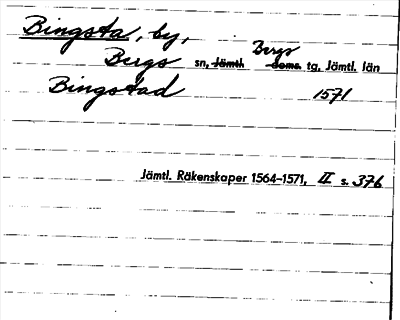 Bingsta, by,
Bergs
Bergs sn, Jämtl. doms. tg, Jämtl. län
Bingstad 1571
Jämtl. Räkenskaper 1564-1571, II s. 376